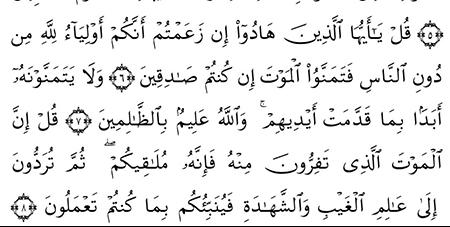 ﴿٥﴾ قُلْ يَـٰٓأَيُّهَا ٱلَّذِينَ هَادُوٓا۟ إِن زَعَمْتُمْ أَنَّكُمْ أَوْلِيَآءُ لِلَّهِ مِن
دُونِ ٱلنَّاسِ فَتَمَنَّوُا۟ ٱلْمَوْتَ إِن كُنتُمْ صَـٰدِقِينَ ﴿٦﴾ وَلَا يَتَمَنَّوْنَهُۥٓ
أَبَدًۢا بِمَا قَدَّمَتْ أَيْدِيهِمْ ۚ وَٱللَّهُ عَلِيمٌۢ بِٱلظَّـٰلِمِينَ ﴿٧﴾ قُلْ إِنَّ
ٱلْمَوْتَ ٱلَّذِى تَفِرُّونَ مِنْهُ فَإِنَّهُۥ مُلَـٰقِيكُمْ ۖ ثُمَّ تُرَدُّونَ
إِلَىٰ عَـٰلِمِ ٱلْغَيْبِ وَٱلشَّهَـٰدَةِ فَيُنَبِّئُكُم بِمَا كُنتُمْ تَعْمَلُونَ ﴿٨﴾